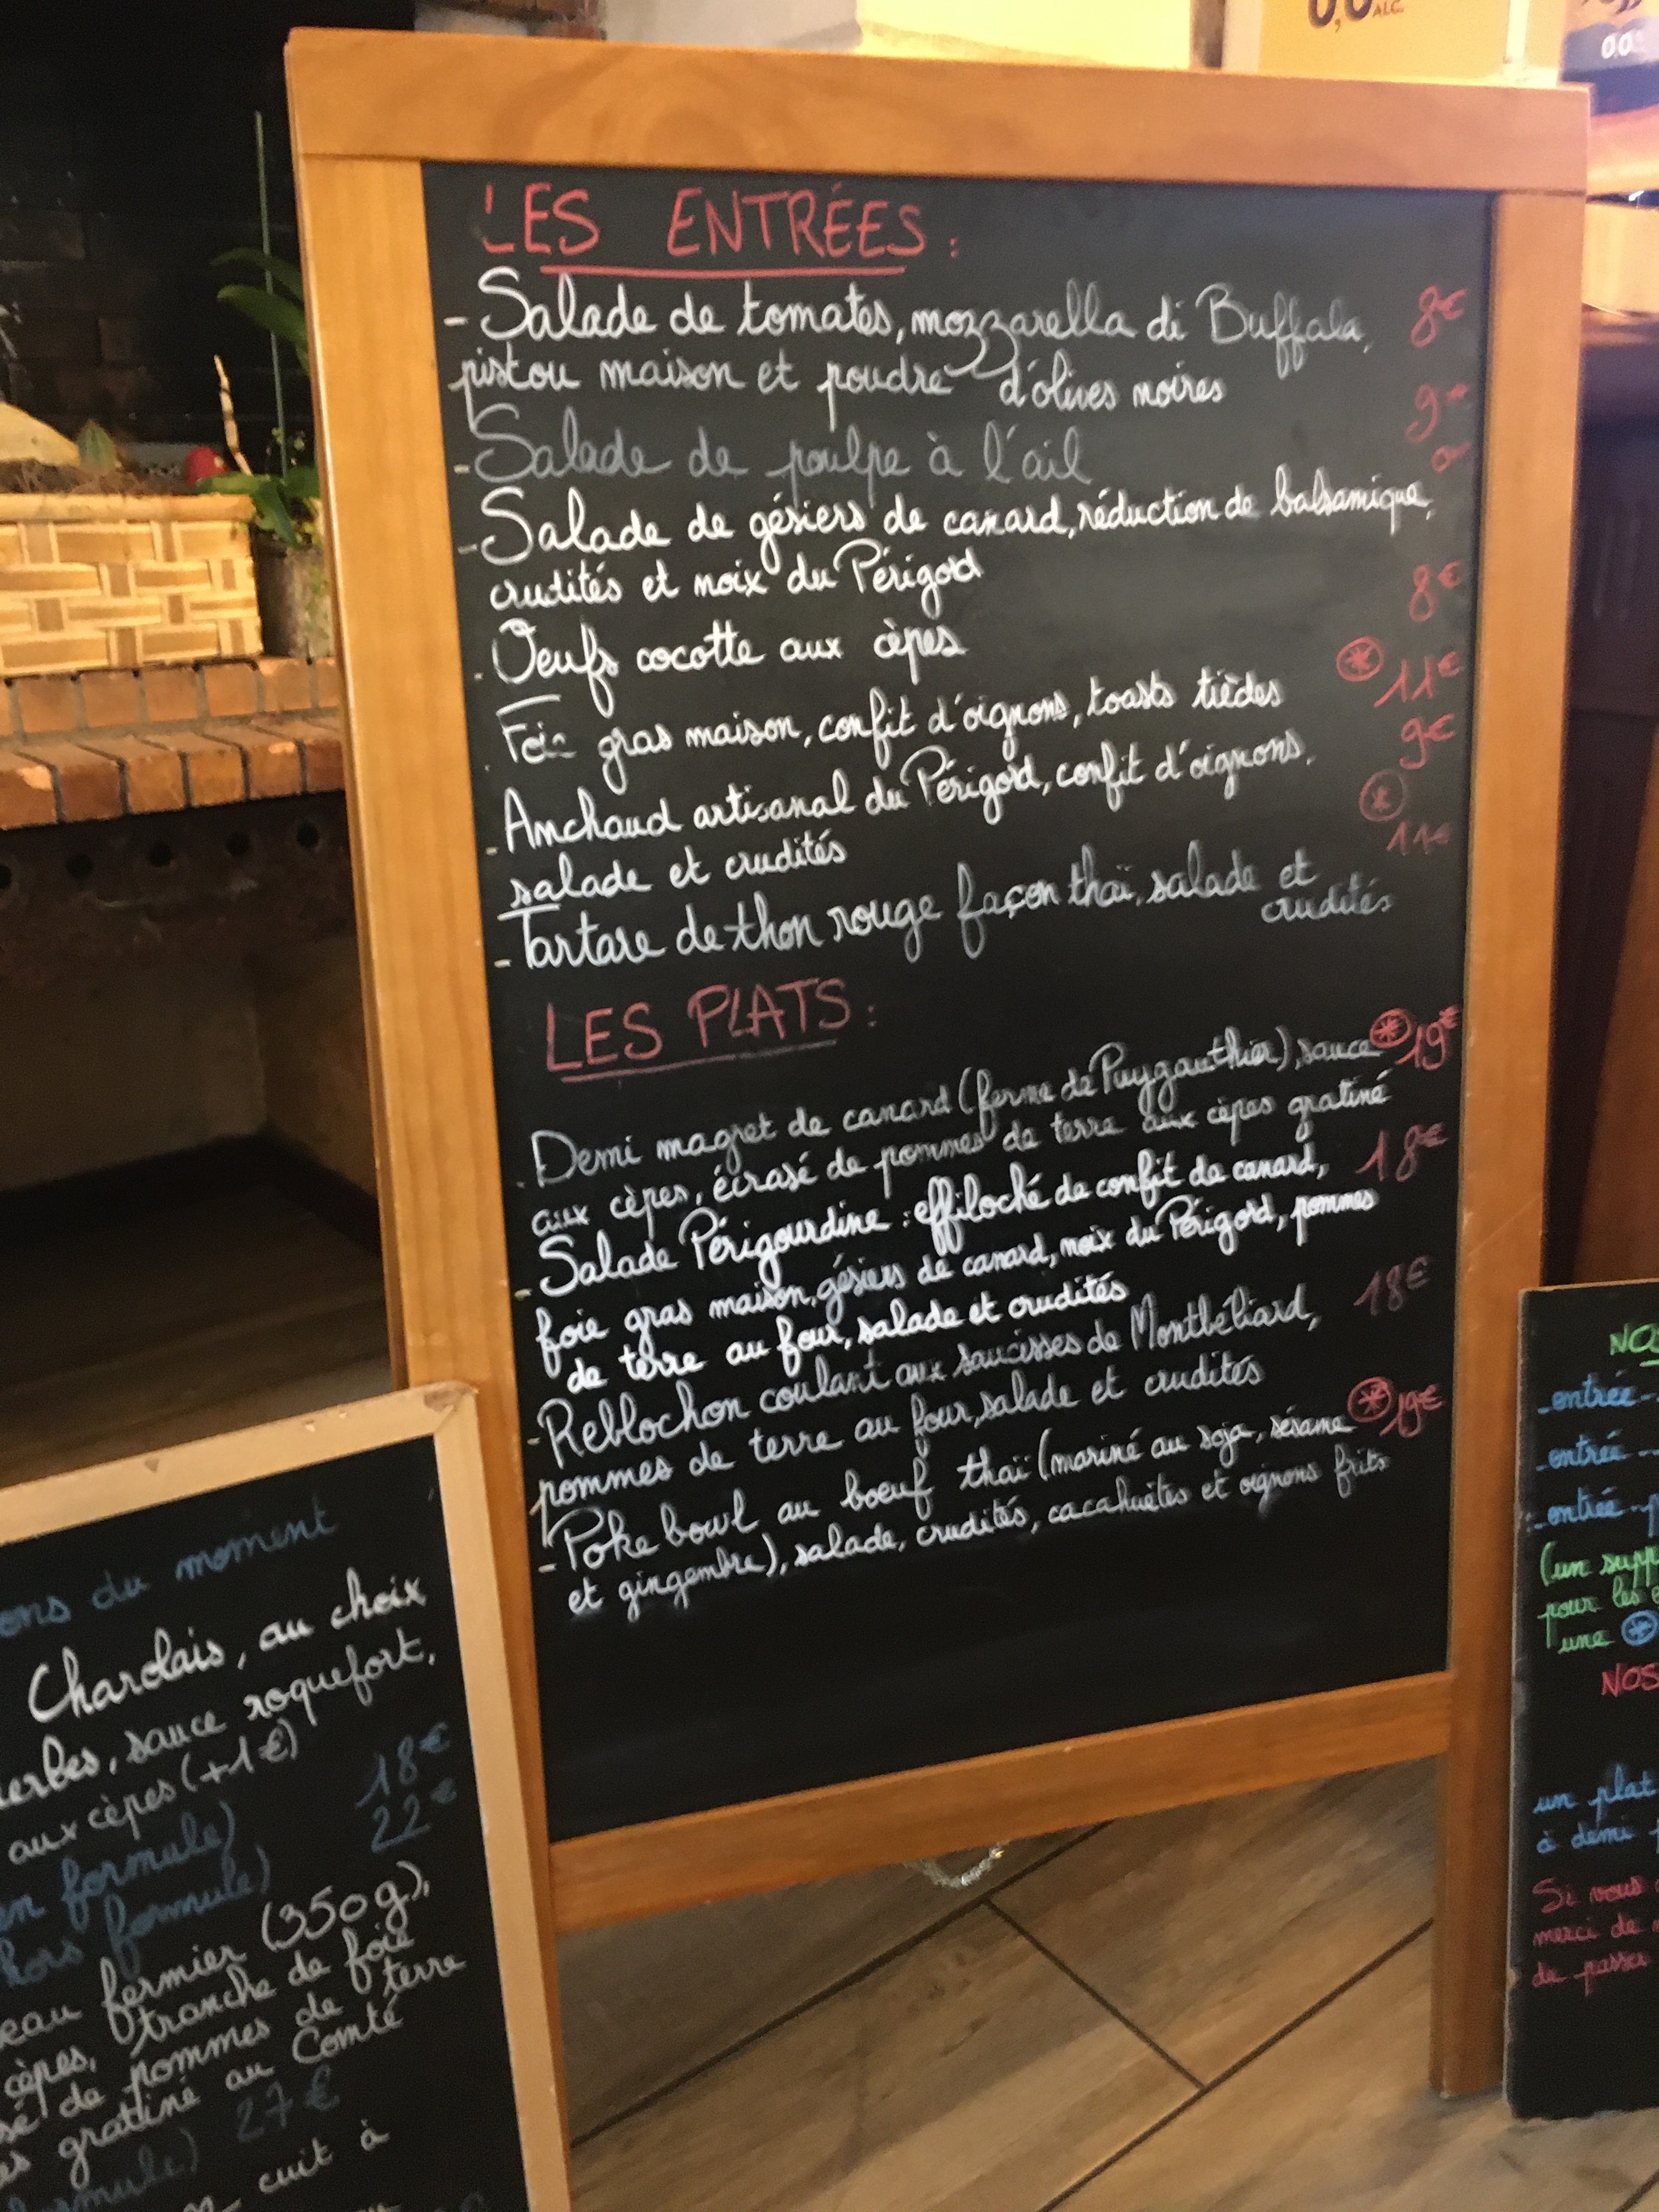 0,0 ALC.
0.0
LES ENTRÉES :
- Salade de tomates, mozzarella di Buffala, 8€
pistou maison et poudre d'olives noires
- Salade de poulpe à l'ail 9
- Salade de gésiers de canard, réduction de balsamique,
crudités et noix du Périgord
- Oeufs cocotte aux cèpes 8€
- Foie gras maison, confit d'oignons, toasts tièdes * 11€
- Anchaud artisanal du Périgord, confit d'oignons, 9€
salade et crudités
- Tartare de thon rouge façon thaï, salade et * 11€
crudités
LES PLATS :
- Demi magret de canard (ferme de Puygauthier), sauce * 19€
aux cèpes, écrasé de pommes de terre aux cèpes gratiné
- Salade Périgourdine : effiloché de confit de canard, 18€
foie gras maison, gésiers de canard, noix du Périgord, pommes
de terre au four, salade et crudités
- Reblochon coulant aux saucisses de Montbéliard, 18€
pommes de terre au four, salade et crudités
- Poke bowl au boeuf thaï (mariné au soja, sésame * 19€
et gingembre), salade, crudités, cacahuètes et oignons frits
ons du moment
Charolais, au choix
erbes, sauce roquefort,
aux cèpes (+1€)
en formule) 18€
hors formule) 22€
eau fermier (350g),
cèpes, tranche de foie
sé de pommes de terre
es gratiné au Comté
ormule) 27€
cuit à
NOS
- entrée -
- entrée -
- entrée - p
(un supp
pour les
une *
NOS
un plat
à demi
Si vous
merci de
de passer